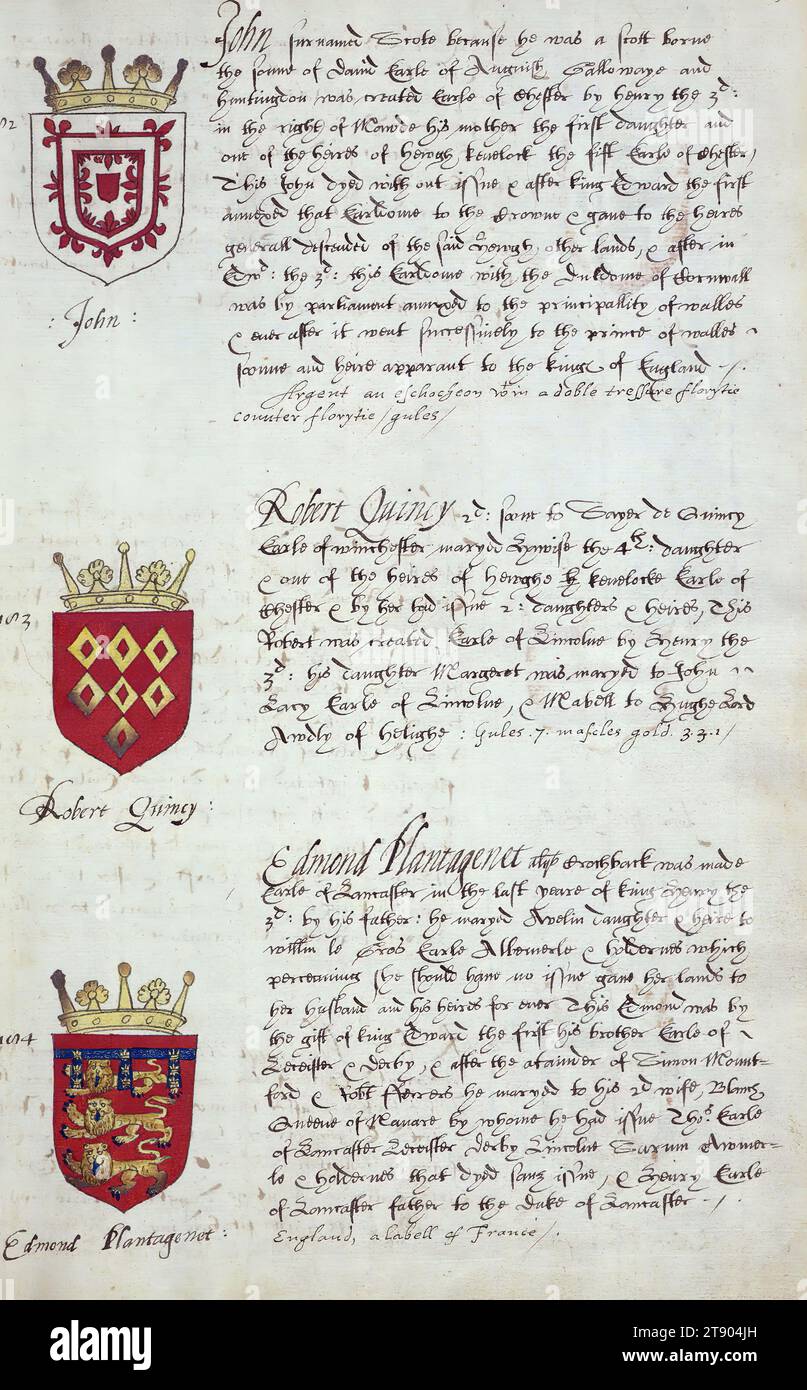 John surnamed Scote because he was a scott borne
the sonne of David Earle of Anguish Gallowaye and
Huntingdon was created Earle of Chester by Henry the 3d:
in the right of Mawde his mother the first daughter and
one of the heires of Hewgh Kevelock the fift Earle of Chester,
This John dyed with out issue & after king Edward the first
annexed that Earldome to the Crowne & gave to the heires
generall descended of the said Hewgh other lands, & after in
Edwd: the 3d: this Earldome with the Dukdome of Cornwall
was by parliament annexed to the principallity of walles
& ever after it went successively to the prince of walles
sonne and heire apparant to the kings of England
Argent an eschocheon wthin a doble tressure florytie
counter florytie / gules /
: John :
182
Robert Quincy 2d: sonne to Sayer de Quincy
Earle of winchester maryed Hawise the 4th: daughter
& one of the heires of Hewghe Kevelocke Earle of
Chester & by her had issue 2: daughters & heires, This
Robert was created Earle of Lincolne by Henry the
3d: his daughter Margeret was maryed to John
Lacy Earle of Lincolne, & Mabell to Hughe Lord
Awdly of Helighe : Gules .7. mascles gold. 3.3.1 /
183
Robert Quincy :
Edmond Plantagenet als Crochback was made
Earle of Lancaster in the last yeare of king Henry the
3d: by his father: he maryed Avelin daughter & heire to
willm le Gros Earle Albemerle & holdernes which
perceaving she should have no issue gave her lands to
her husband and his heires for ever This Edmond was by
the gift of king Edward the first his brother Earle of
Leicester & Derby, & after the atainder of Simon Mount-
ford & Robt fferrers he maryed to his 2d wife, Blanch
Queene of Navare by whome he had issue Thos. Earle
of Lancaster Leicester Derby Lincolne Sarum Awmer-
le & holdernes that dyed sanz issue, & Henry Earle
of Lancaster father to the Duke of Lancaster
England, a labell of France /.
184
Edmond Plantagenet :
alamy
Image ID: 2T904JH
www.alamy.com